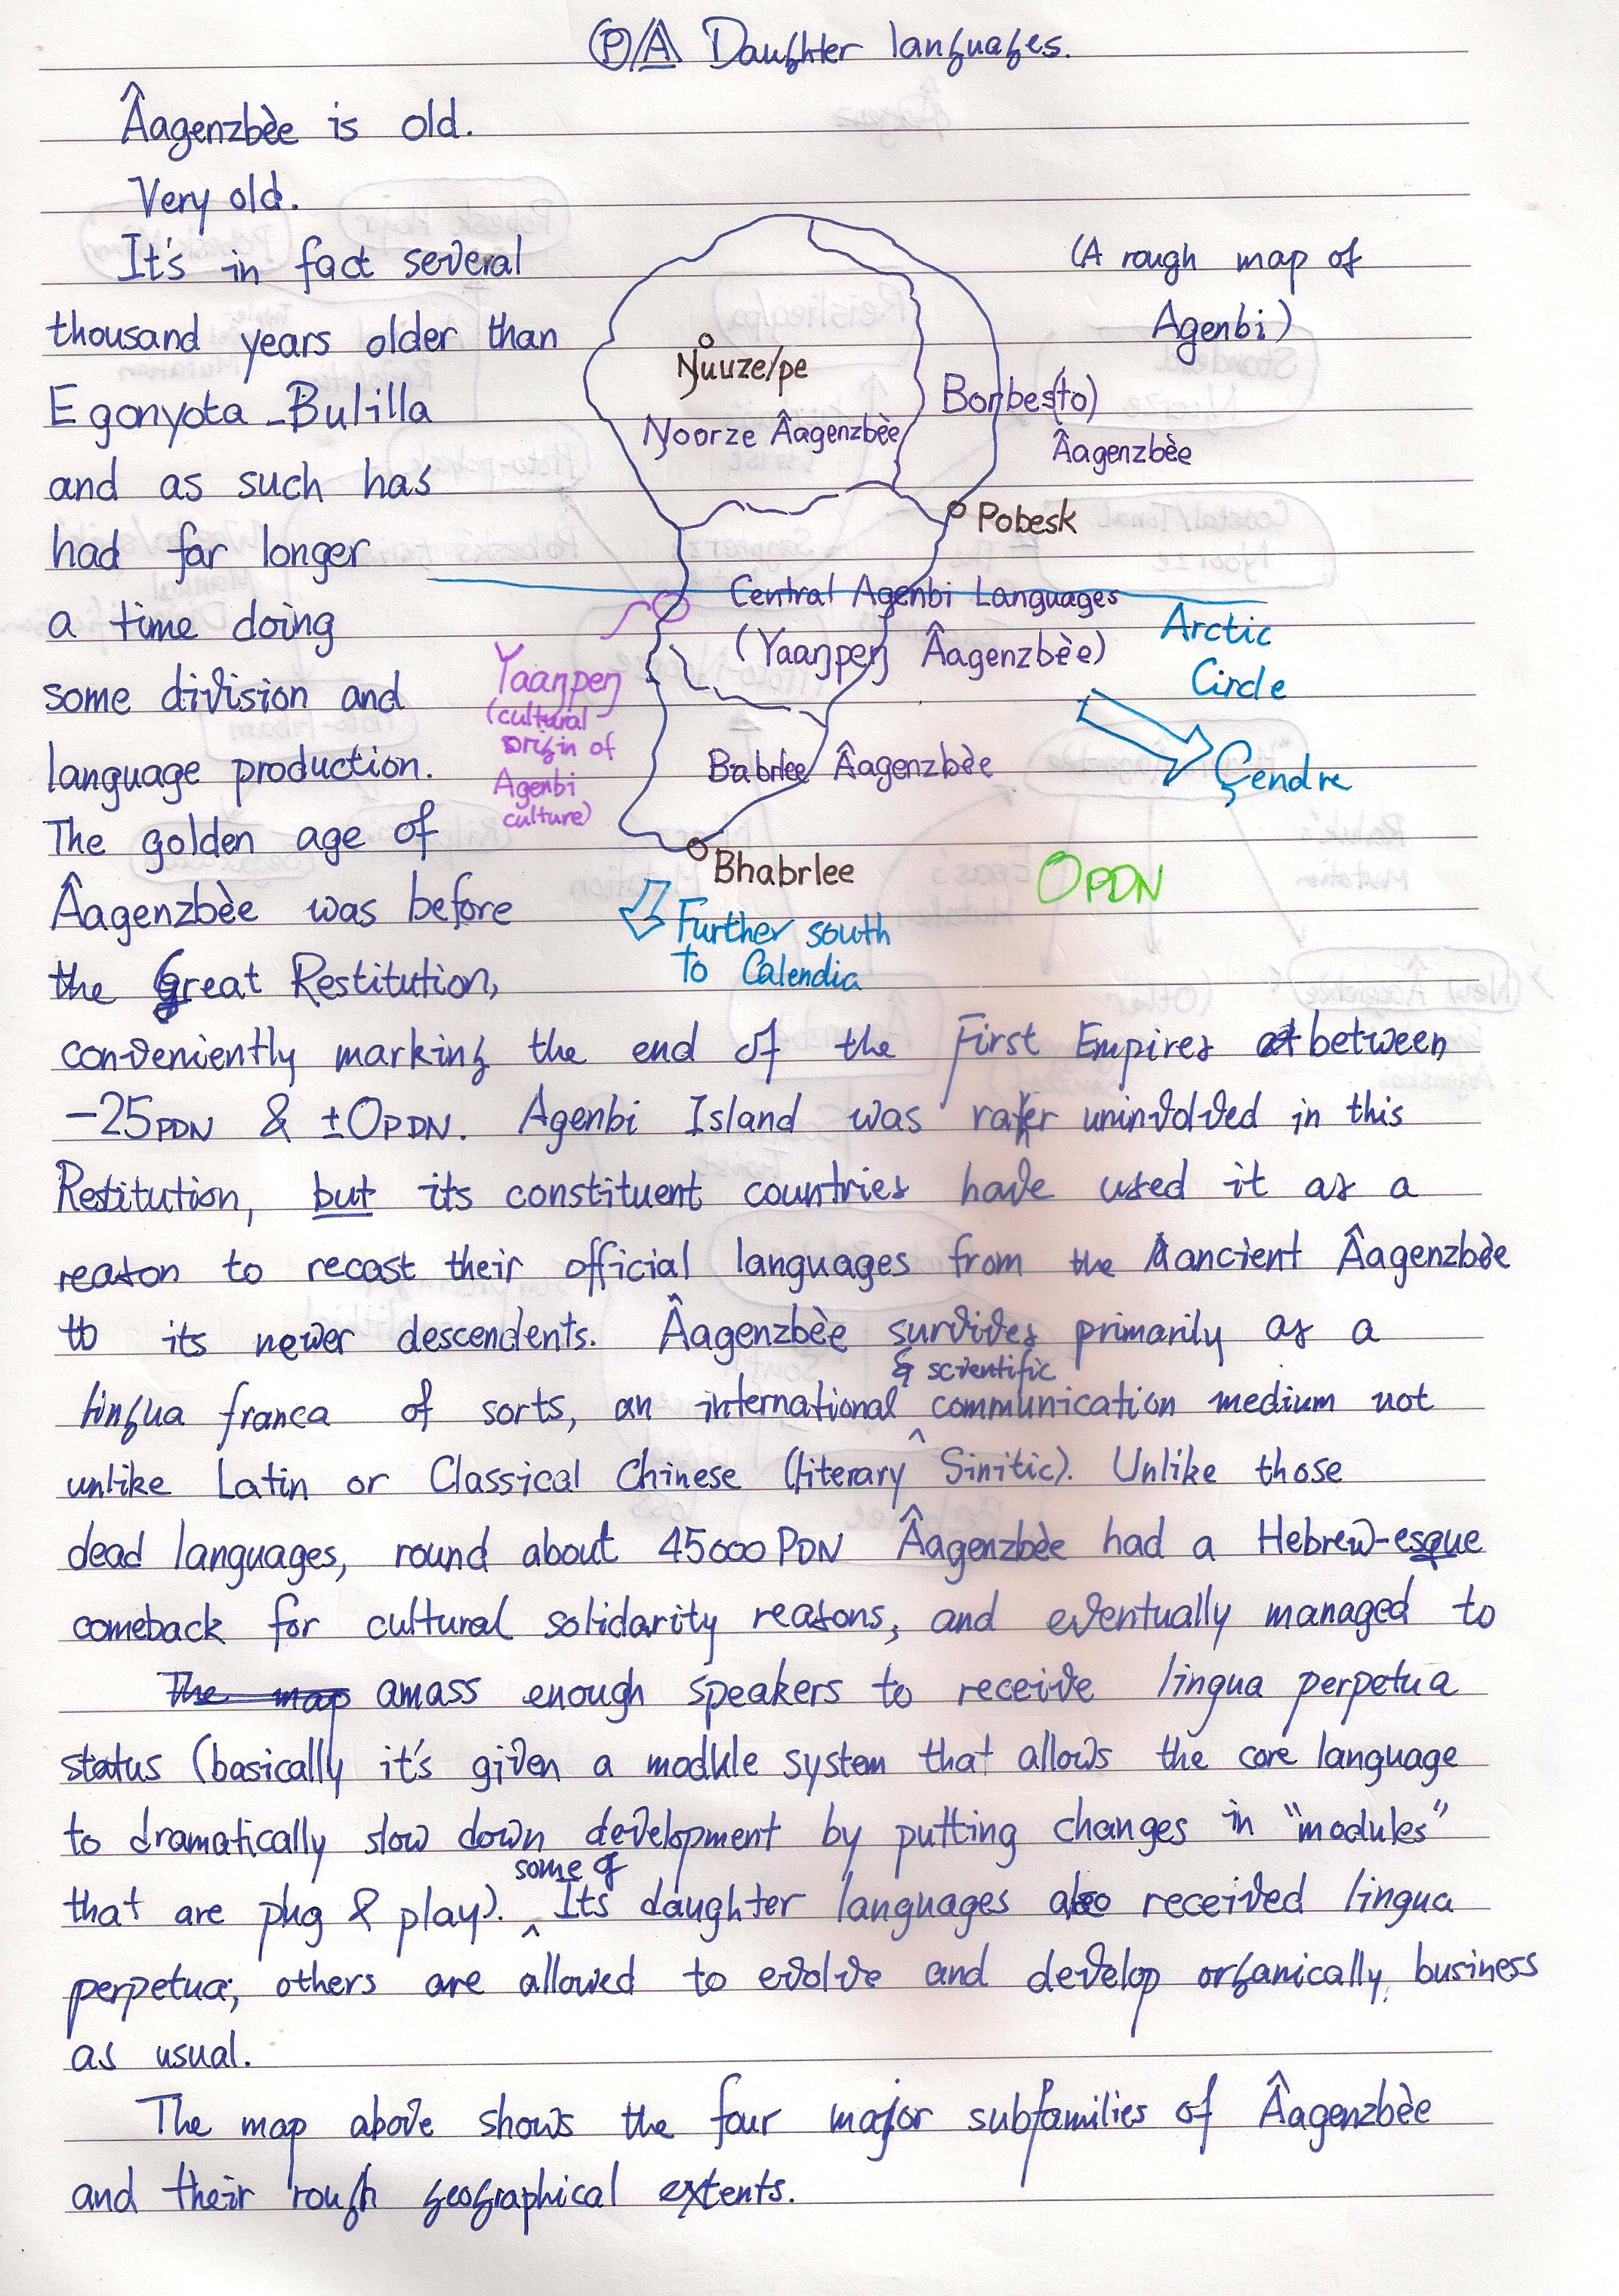 Ⓟ/A Daughter languages.
Âagenzbèe is old.
Very old.
It's in fact several
thousand years older than
Egonyota-Bulilla
and as such has
had far longer
a time doing
some division and
language production.
The golden age of
Âagenzbèe was before
the Great Restitution,
(A rough map of
Agenbi)
Ŋuuze/pe
Ŋoorze Âagenzbèe
Borbes(to)
Âagenzbèe
Pobesk
Central Agenbi Languages
(Yaaŋpeŋ Âagenzbèe)
Arctic
Circle
Yaaŋpeŋ
(cultural
origin of
Agenbi
culture)
Çendre
Babrlee Âagenzbèe
Bhabrlee
0PDN
Further south
to Calendia
conveniently marking the end of the First Empires at between
-25PDN & ±0PDN. Agenbi Island was rather uninvolved in this
Restitution, but its constituent countries have used it as a
reason to recast their official languages from the ancient Âagenzbèe
to its newer descendents. Âagenzbèe survives primarily as a
lingua franca of sorts, an international & scientific communication medium not
unlike Latin or Classical Chinese (literary Sinitic). Unlike those
dead languages, round about 45000PDN Âagenzbèe had a Hebrew-esque
comeback for cultural solidarity reasons, and eventually managed to
The map amass enough speakers to receive lingua perpetua
status (basically it's given a module system that allows the core language
to dramatically slow down development by putting changes in "modules"
that are plug & play). some of Its daughter languages also received lingua
perpetua; others are allowed to evolve and develop organically, business
as usual.
The map above shows the four major subfamilies of Âagenzbèe
and their rough geographical extents.